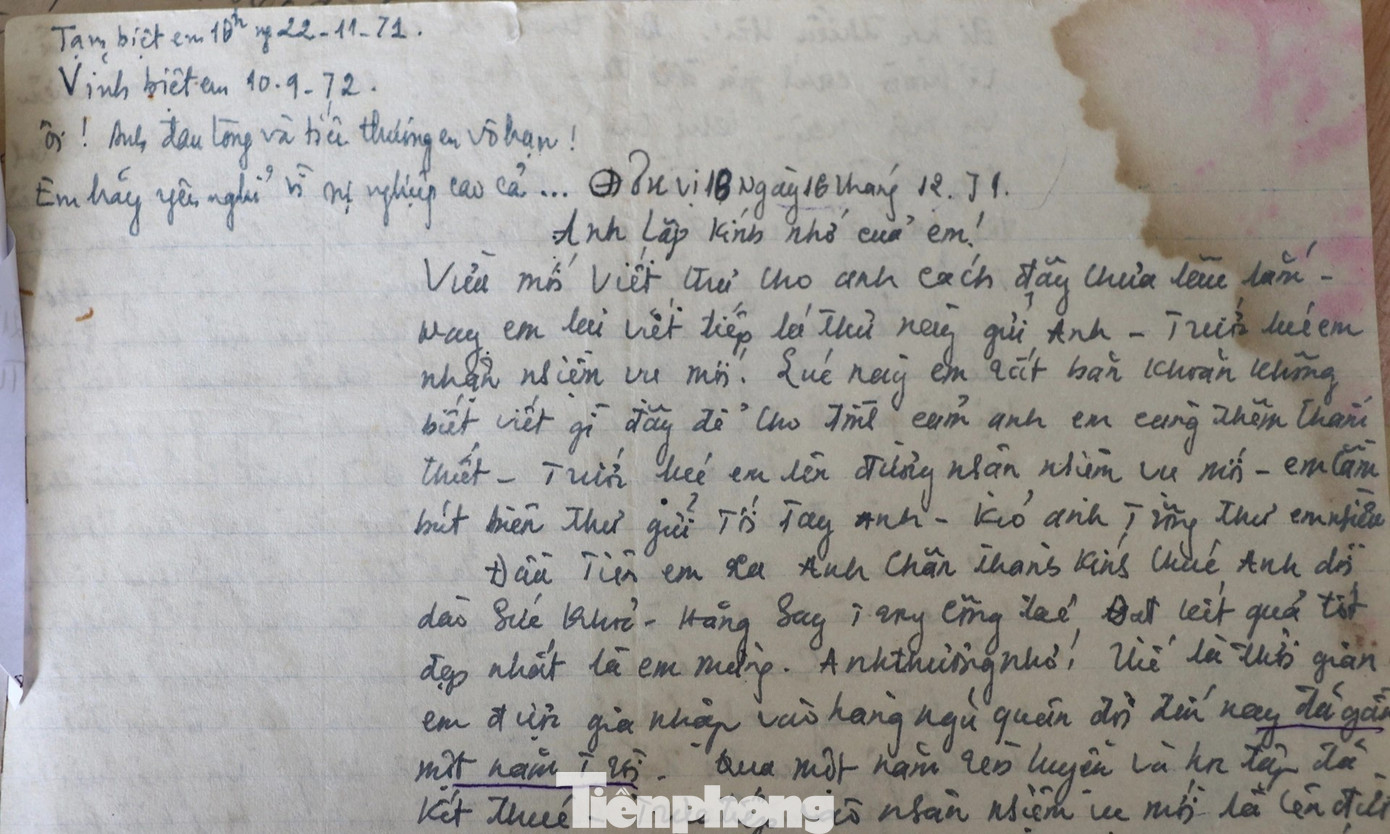 Tạm biệt em 18h ng 22-11-71.
Vĩnh biệt em 10.9-72.
Ôi! Anh đau lòng và tiếc thương em vô hạn!
Em hãy yên nghỉ vì sự nghiệp cao cả...
Đơn vị 18 ngày 18 tháng 12.71.
Anh Lập kính nhớ của em!
Viết mới viết thư cho anh cách đây chưa lâu lắm -
nay em lại viết tiếp lá thư này gửi Anh - Trước lúc em
nhận nhiệm vụ mới. Lúc này em rất băn khoăn không
biết viết gì đây để cho tình cảm anh em càng thêm thắm
thiết - Trước lúc em lên đường nhận nhiệm vụ mới - em cầm
bút biên thư gửi tới tay Anh - Kính anh trong thư em nhiều
Đầu Tiên em Anh chân thành kính chúc Anh dồi
dào sức khỏe - Hăng Say trong công tác Đạt kết quả tốt
đẹp nhất là em mừng. Anh thương nhớ! Thế là thời gian
em được gia nhập vào hàng ngũ quân đội đến nay đã gần
một năm rồi. Qua một năm rèn luyện và học tập đã
kết thúc - nhận nhiệm vụ mới là lên đường
Tiền phong